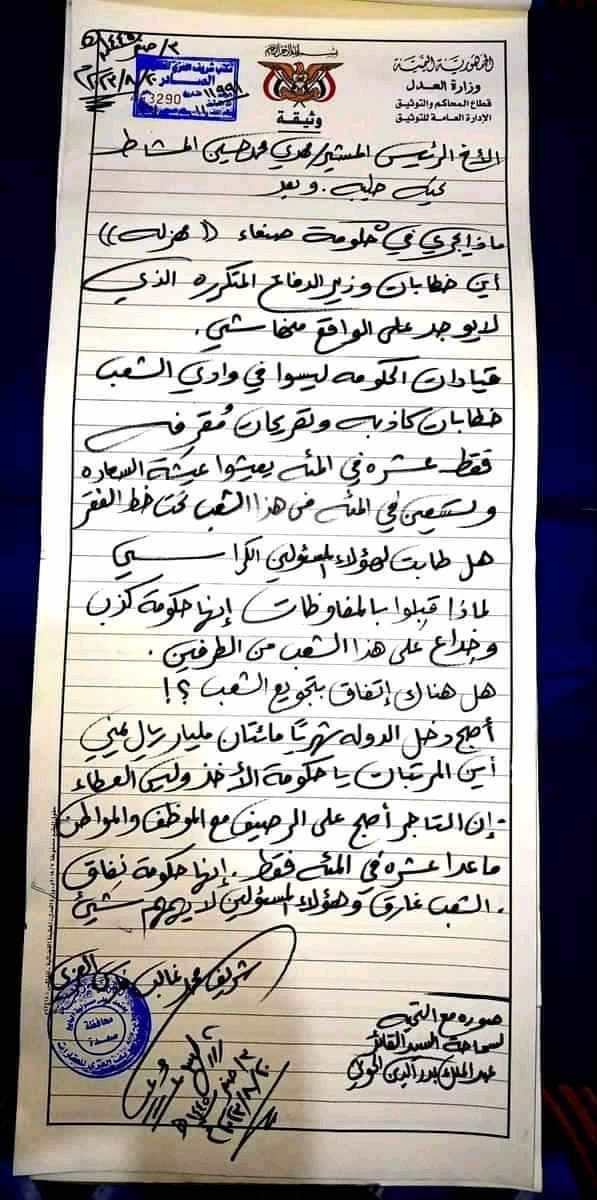 الجمهورية اليمنية
وزارة العدل
قطاع المحاكم والتوثيق
الإدارة العامة للتوثيق
وثيقة
3290
الأخ الرئيس المشير/ مهدي محمد حسين المشاط
تحيه طيبه . وبعد
ماذا يجري في حكومة صنعاء ((مهزله))
أين خطابات وزير الدفاع المتكرره الذي
لا يوجد على الواقع منها شي .
قيادات الحكومه ليسوا في وادي الشعب
خطابات كاذبه وتصريحات مُقرفه
فقط عشره في المئه يعيشوا عيشة السعاده
وتسعين في المئه من هذا الشعب تحت خط الفقر
هل طابت لهؤلاء المسئولين الكراسي
لماذا قبلوا بالمفاوظات إنها حكومة كذب
وخداع على هذا الشعب من الطرفين .
هل هناك إتفاق بتجويع الشعب ؟!
أصبح دخل الدوله شهرياً مائتان مليار ريال يمني
أين المرتبات يا حكومة الأخذ وليس العطاء
- إن التاجر أصبح على الرصيف مع الموظف والمواطن
ماعدا عشره في المئه فقط . إنها حكومة نِفاق
. الشعب غارق وهؤلاء المسئولين لا يهمهم شيئ
شريف محمد غالب
صوره مع التحيه
لسماحة السيد القائد
عبدالملك بدرالدين الحوثي
محافظة
صعدة